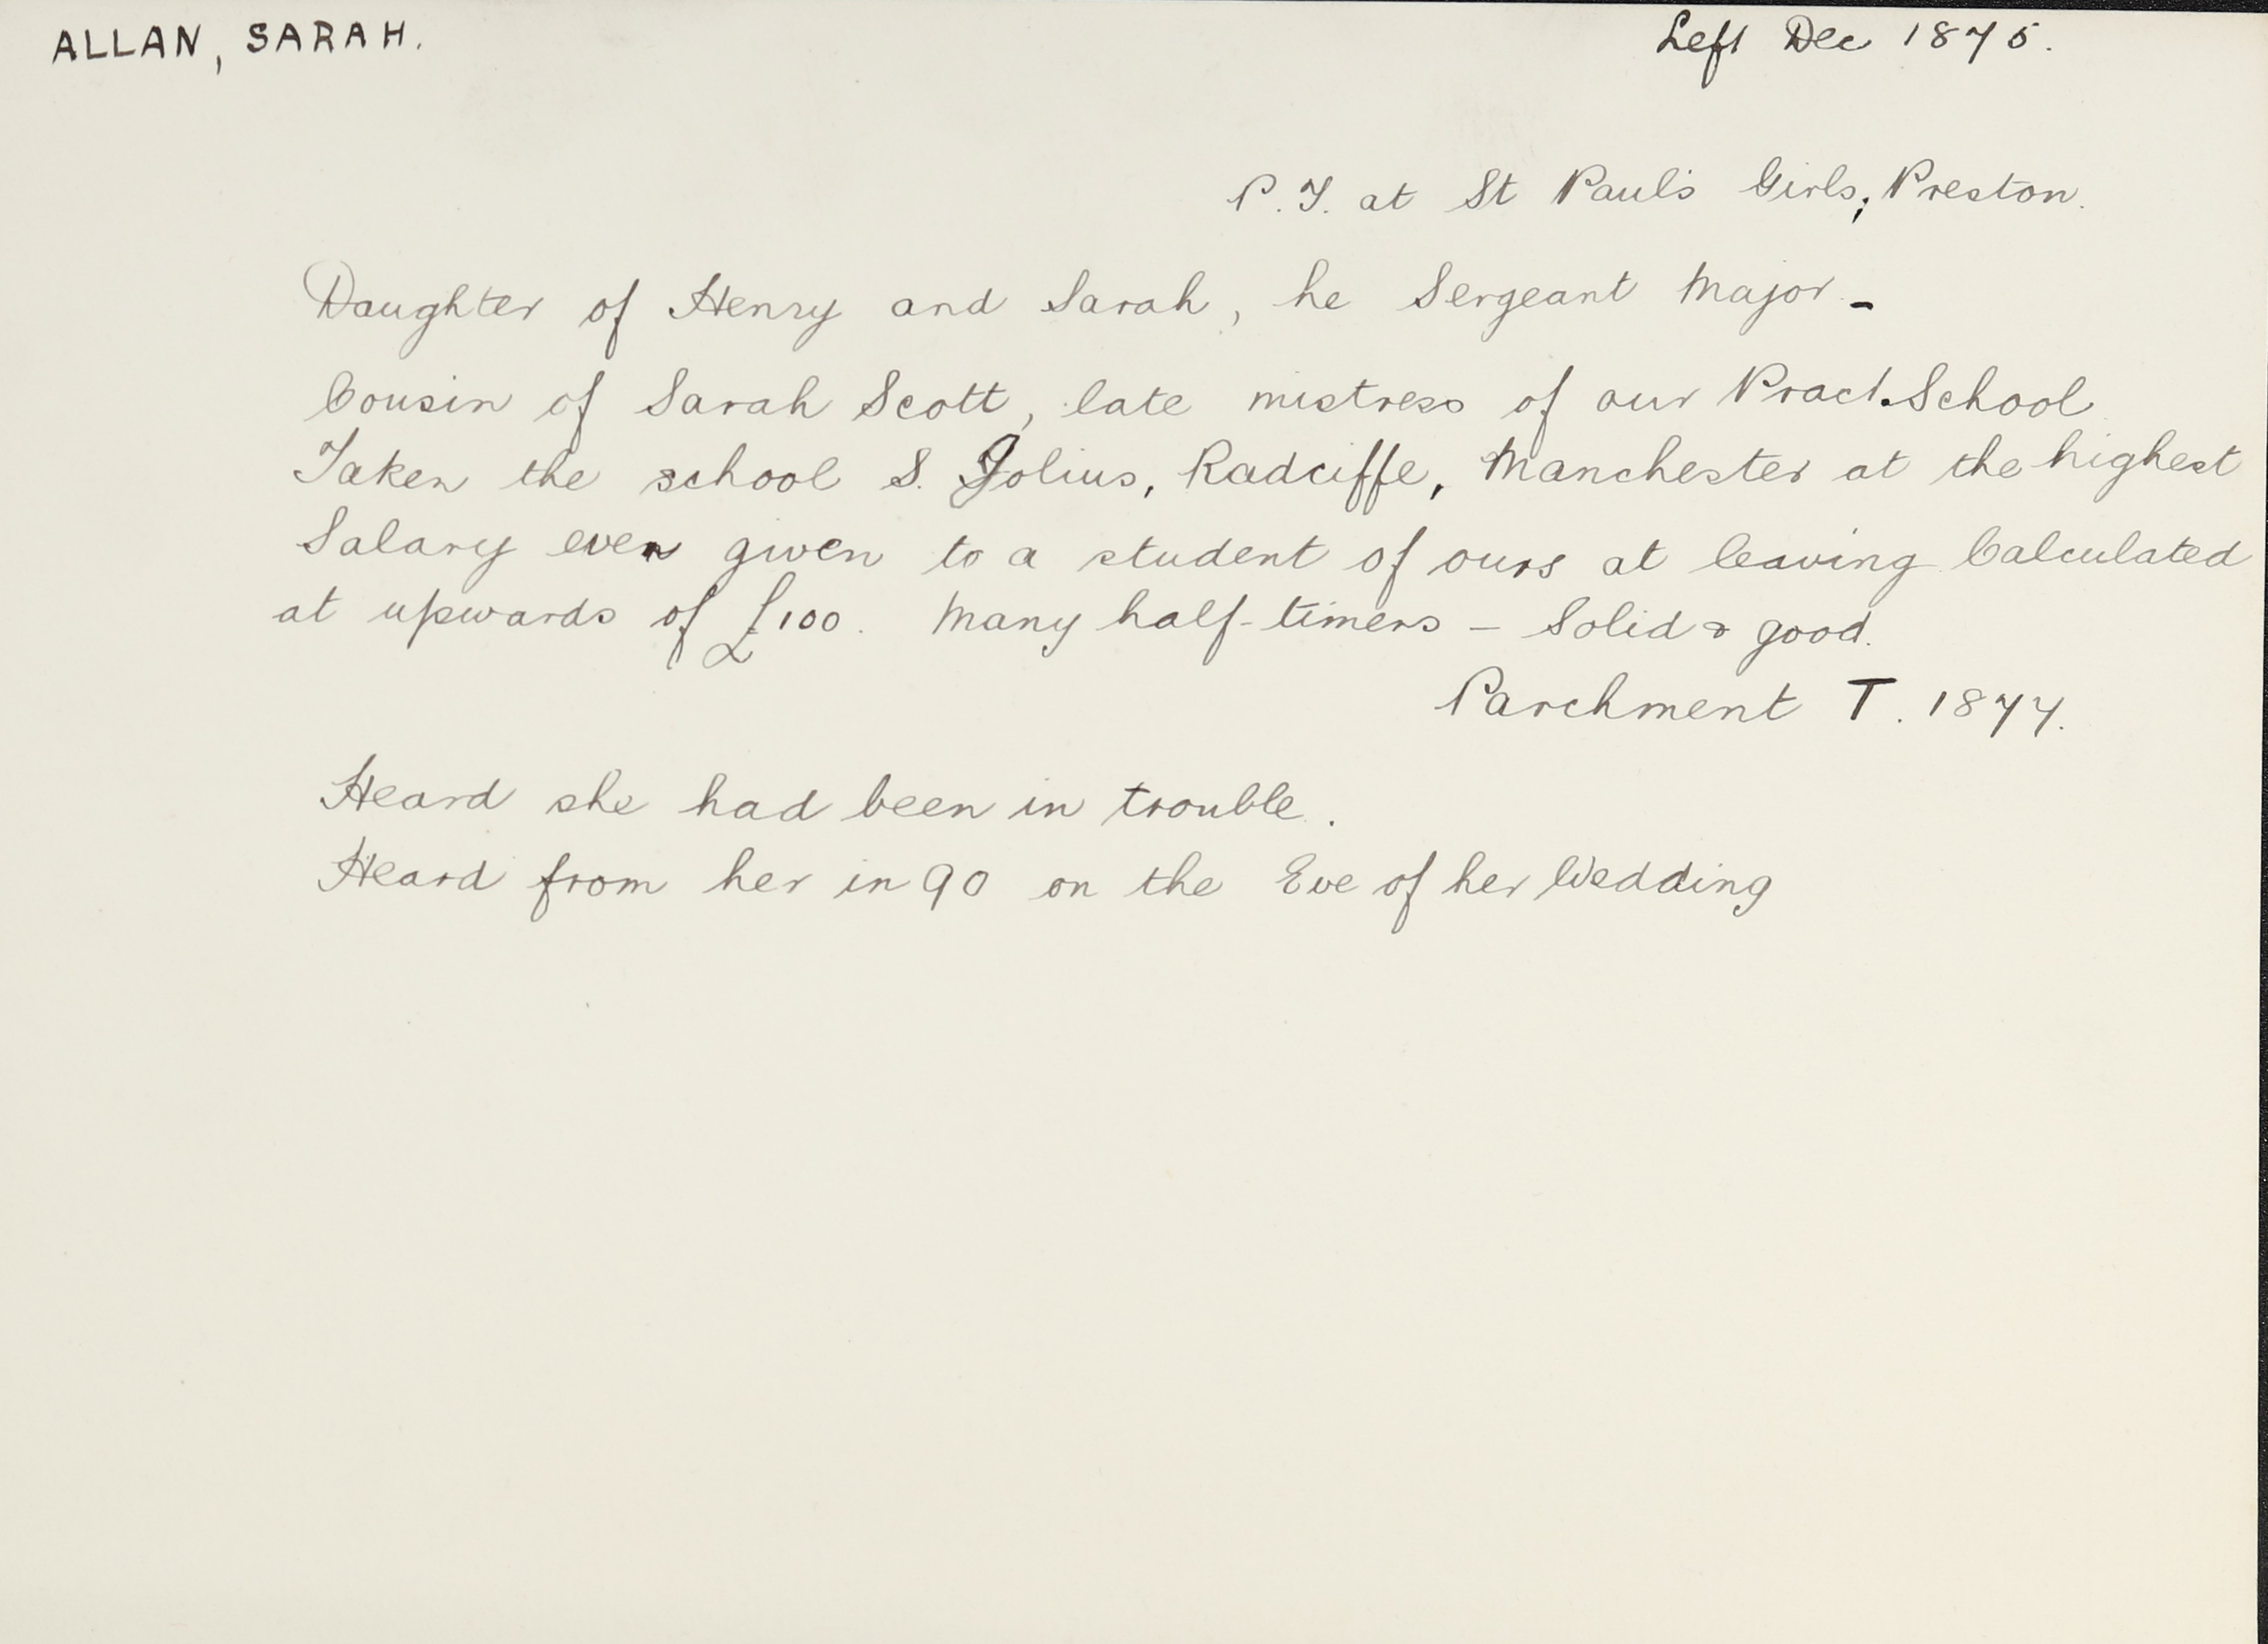 ALLAN, SARAH.
Left Dec 1875.
P.T. at St Paul's Girls; Preston.
Daughter of Henry and Sarah, he Sergeant Major -
Cousin of Sarah Scott, late mistress of our Pract. School
Taken the school S. Jolius, Radciffe, Manchester at the highest
Salary ever given to a student of ours at leaving Calculated
at upwards of £100. Many half-timers - Solid & good.
Parchment T. 1877.
Heard she had been in trouble.
Heard from her in 90 on the Eve of her Wedding